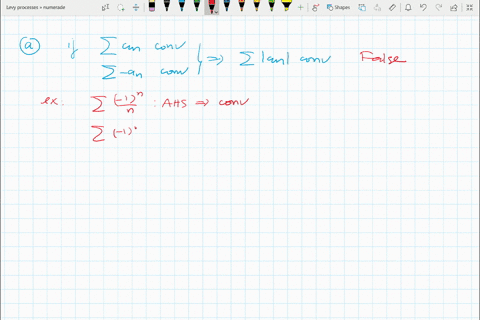 Levy processes » numerade
Shapes
(a) if ∑ an conv
∑ -an conv } ⇒ ∑ |an| conv False
ex: ∑ (-1)^n / n : AHS ⇒ conv
∑ (-1)^